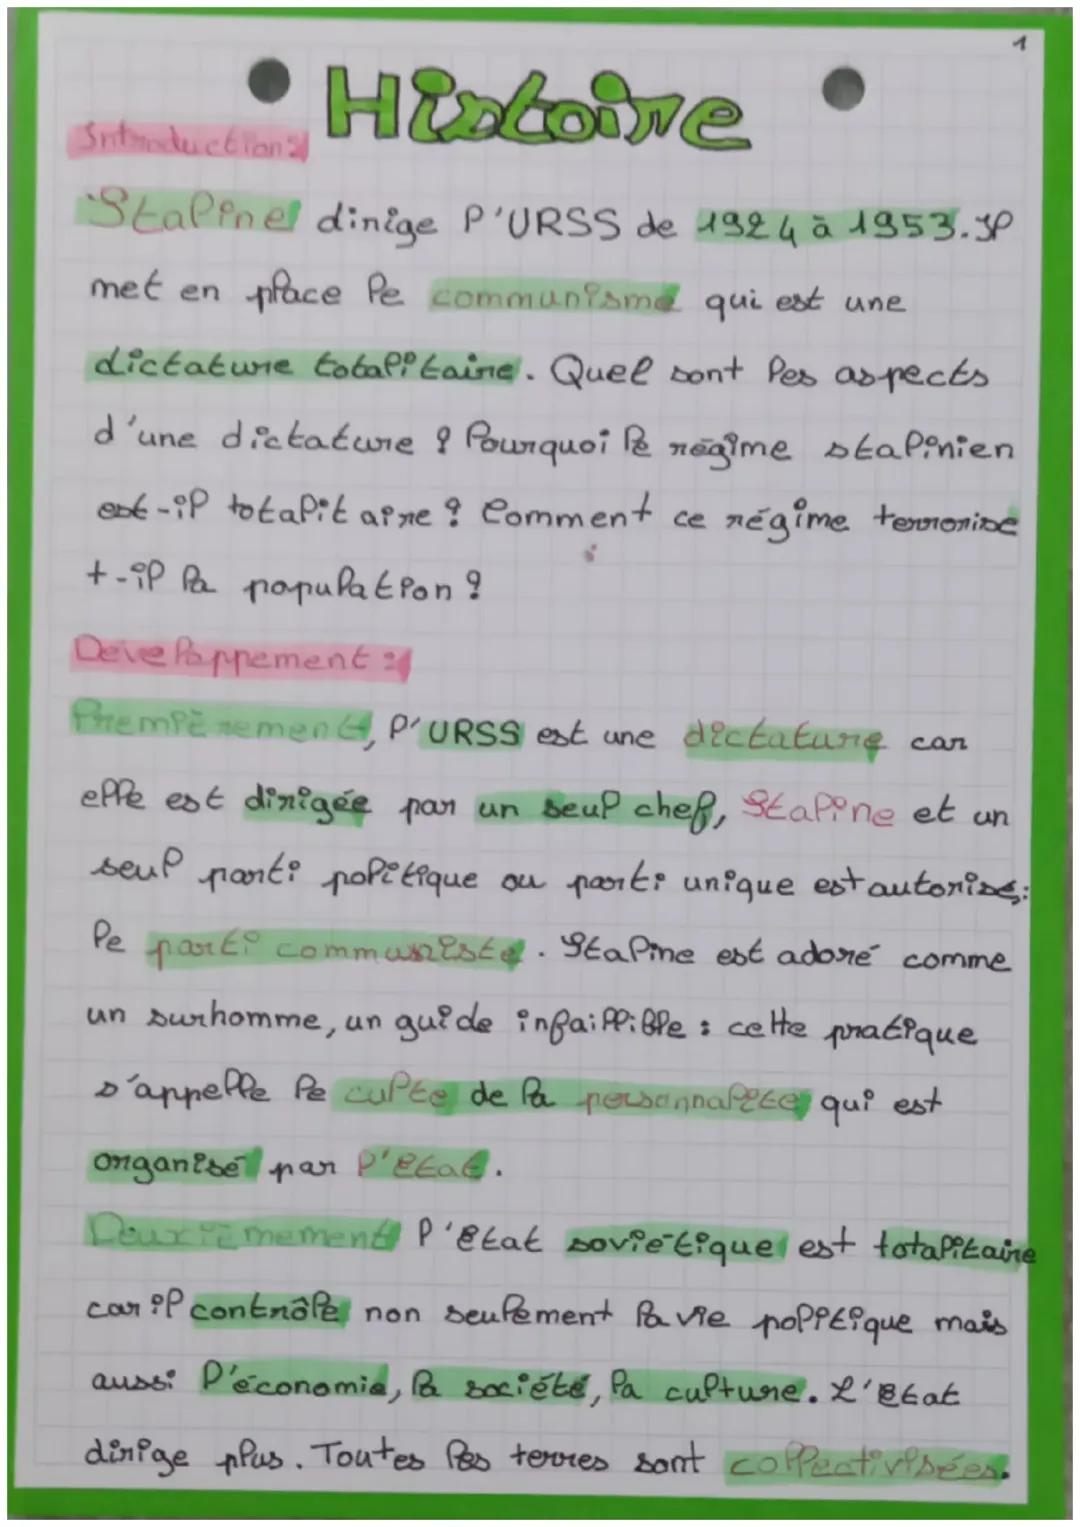 1
Histoire
Introduction :
Staline dirige l'URSS de 1924 à 1953. Il
met en place le communisme qui est une
dictature totalitaire. Quel sont les aspects
d'une dictature ? Pourquoi le régime stalinien
est-il totalitaire ? Comment ce régime terrorise
t-il la population ?
Developpement :
Premièrement, l'URSS est une dictature car
elle est dirigée par un seul chef, Staline et un
seul parti politique ou parti unique est autorisé :
le parti communiste. Staline est adoré comme
un surhomme, un guide infaillible : cette pratique
s'appelle le culte de la personnalité qui est
organisé par l'Etat.
Deuxièmement l'Etat soviétique est totalitaire
car il contrôle non seulement la vie politique mais
aussi l'économie, la société, la culture. L'Etat
dirige plus. Toutes les terres sont collectivisées.